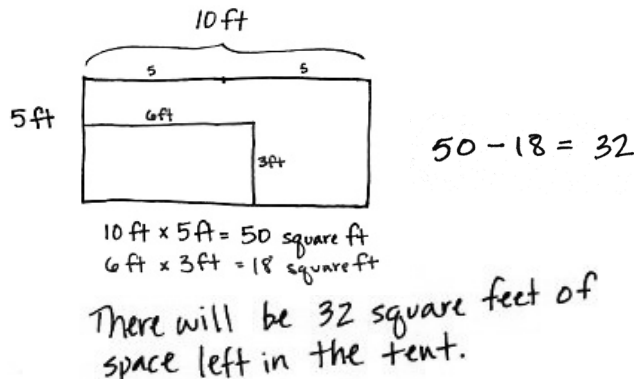 10ft
5 5
5ft
6ft
3ft
50 - 18 = 32
10 ft x 5ft = 50 square ft
6 ft x 3ft = 18 square ft
There will be 32 square feet of
space left in the tent.